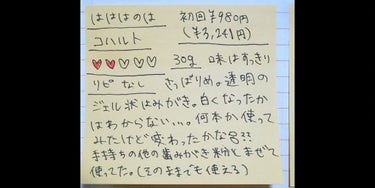 はははのは 初回¥980円
コハルト (¥3,241円)
♥♥♡♡♡ 30g 味はすっきり
リピなし さっぱりめ。透明の
ジェル状はみがき。白くなったか
はわからない...。何本か使って
みたけど変わったかな??
手持ちの他の歯みがき粉とまぜて
使ってた。(そのままでも使える)